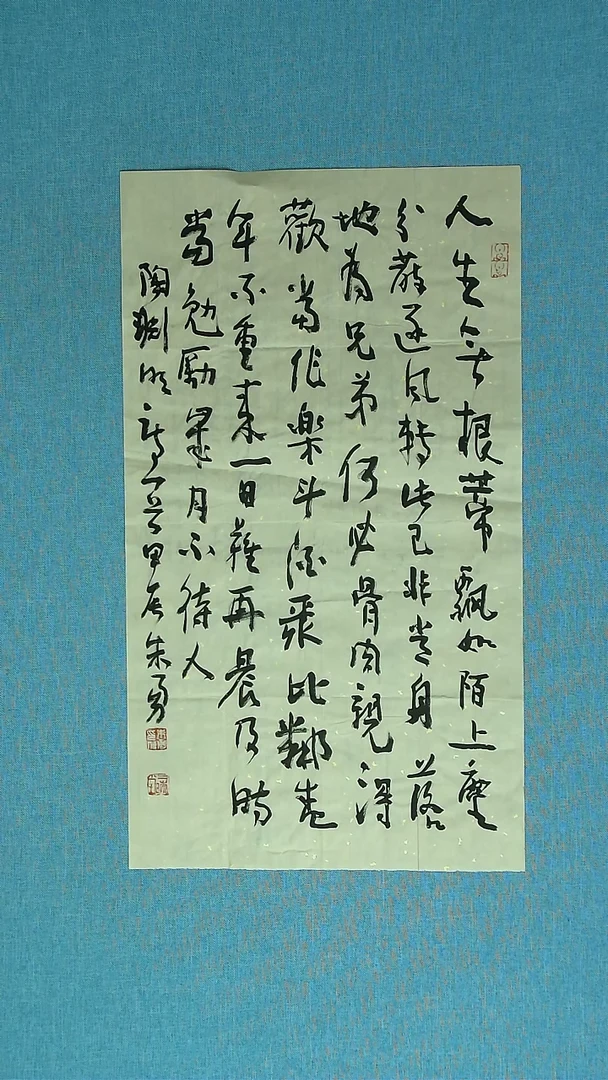 人生無根蒂飄如陌上塵
分散逐風轉此已非常身落
地為兄弟何必骨肉親得
歡當作樂斗酒聚比鄰盛
年不重來一日難再晨及時
當勉勵歲月不待人
陶淵明詩一首甲辰朱勇